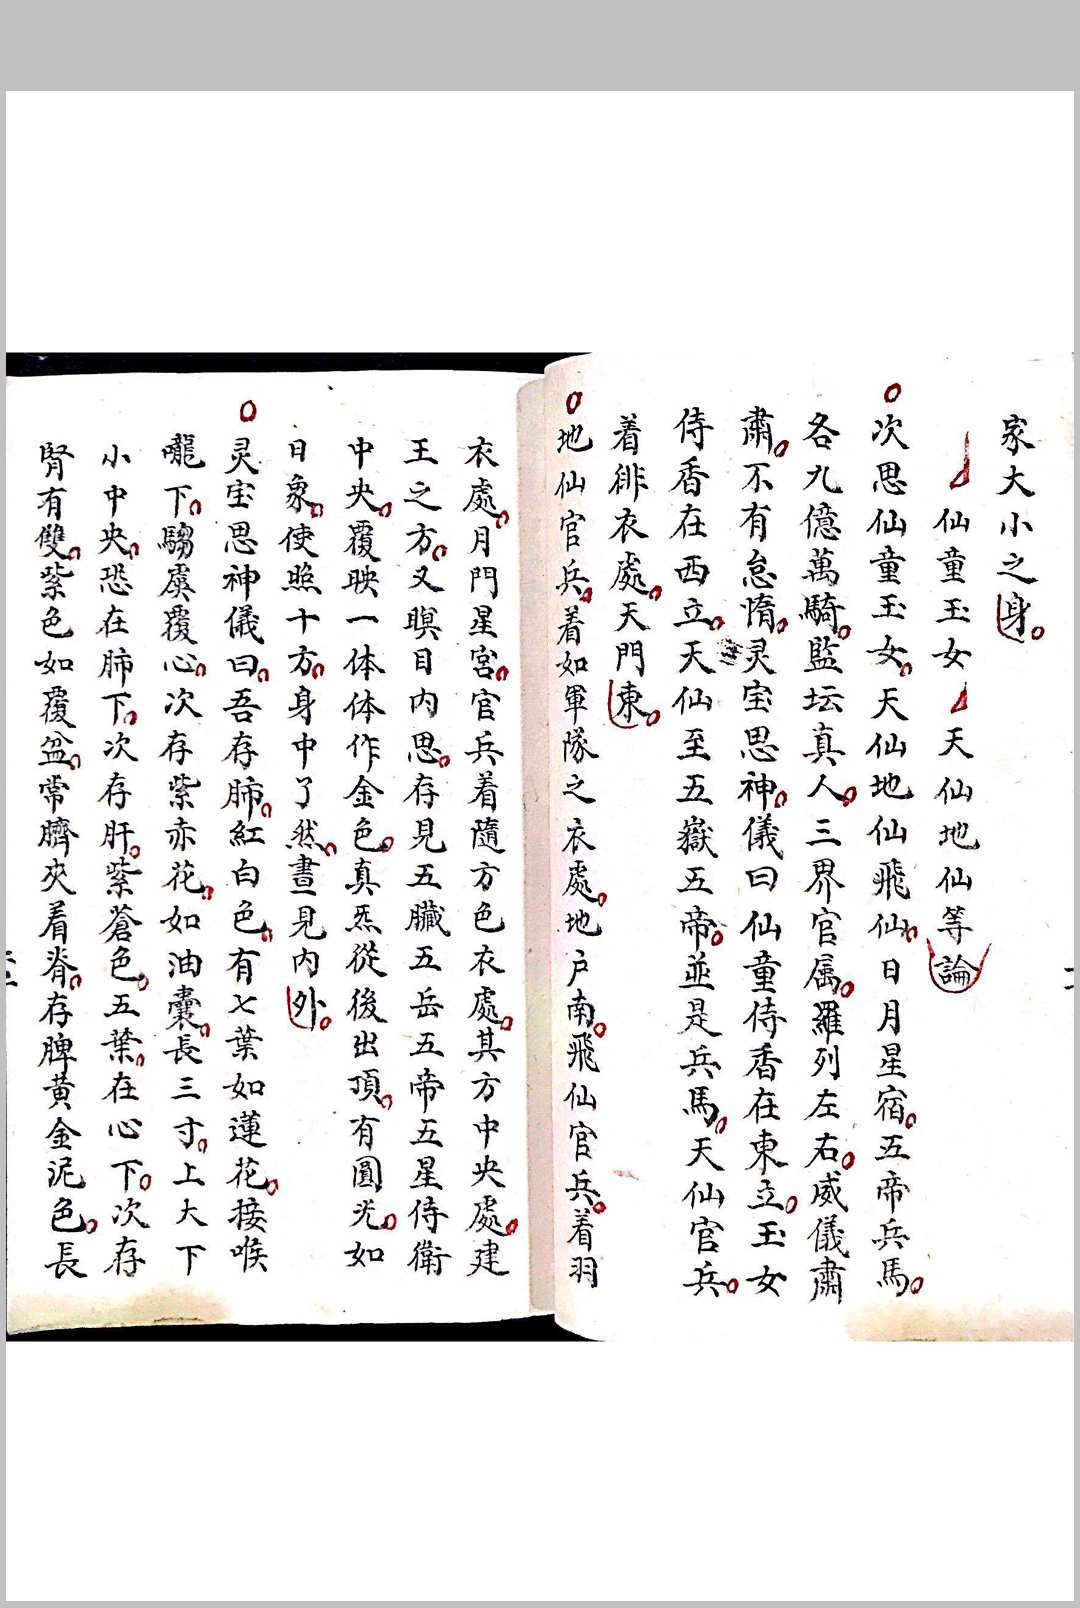 家大小之身
仙童玉女天仙地仙等論
次思仙童玉女天仙地仙飛仙日月星宿五帝兵馬
各九億萬騎監坛真人三界官属羅列左右威儀肅
肅不有怠惰灵宝思神儀曰仙童侍香在東立玉女
侍香在西立天仙至五嶽五帝並是兵馬天仙官兵
着緋衣處天門東
地仙官兵着如軍隊之衣處地戸南飛仙官兵着羽
衣處月門星宮官兵着隨方色衣處其方中央處建
王之方又瞑目内思存見五臓五岳五帝五星侍衛
中央覆映一体体作金色真炁從後出頂有圓光如
日象使照十方身中了然晝見内外
灵宝思神儀曰吾存肺紅白色有七葉如蓮花接喉
嚨下騶虞覆心次存紫赤花如油囊長三寸上大下
小中央恐在肺下次存肝紫蒼色五葉在心下次存
腎有雙紫色如覆盆常臍夾着脊存脾黄金泥色長